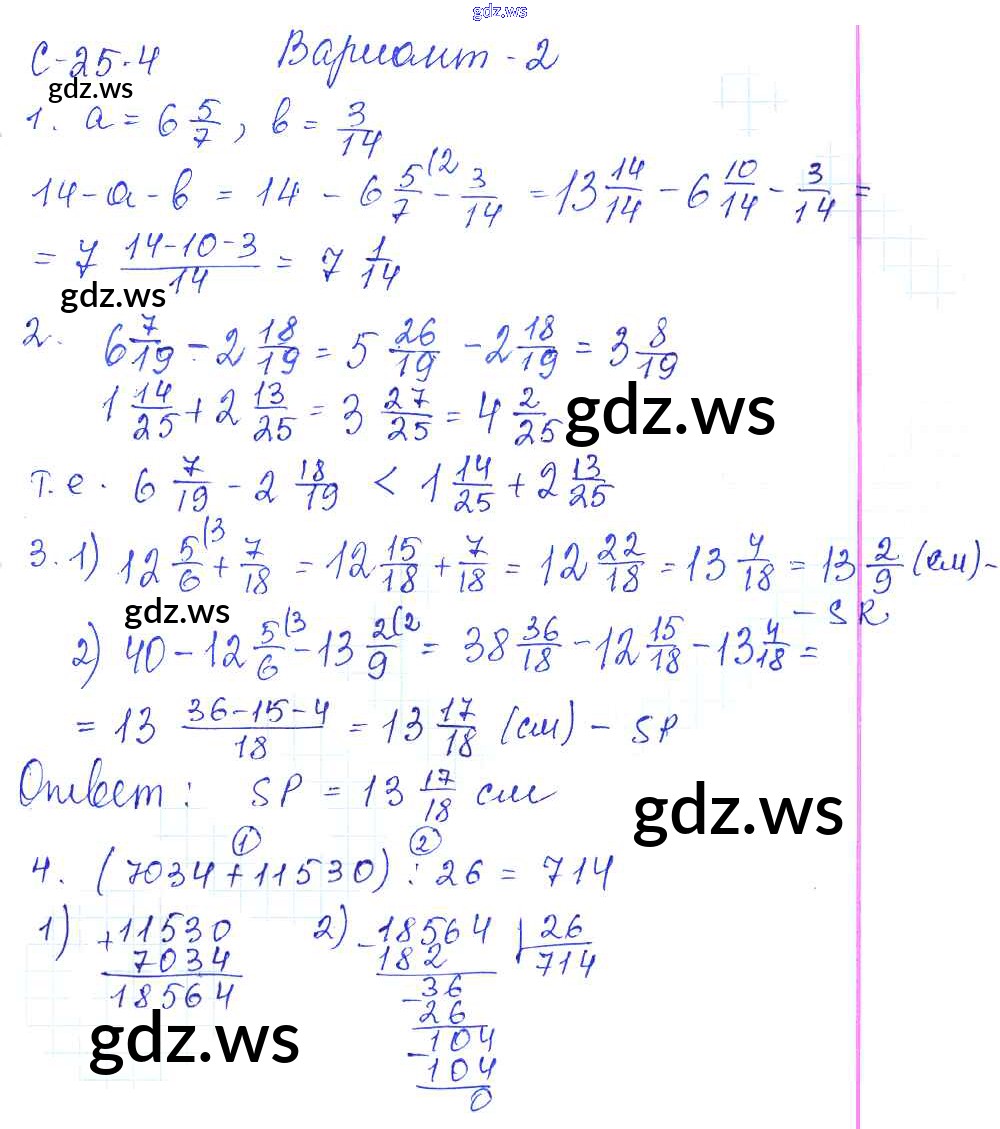 gdz.ws
С-25.4 Вариант - 2
gdz.ws
1. a = 6 5/7, b = 3/14
14 - a - b = 14 - 6 5/7 (2 - 3/14 = 13 14/14 - 6 10/14 - 3/14 =
= 7 (14-10-3)/14 = 7 1/14
gdz.ws
2. 6 7/19 - 2 18/19 = 5 26/19 - 2 18/19 = 3 8/19
1 14/25 + 2 13/25 = 3 27/25 = 4 2/25
gdz.ws
т.е. 6 7/19 - 2 18/19 < 1 14/25 + 2 13/25
3. 1) 12 5/6 (3 + 7/18 = 12 15/18 + 7/18 = 12 22/18 = 13 4/18 = 13 2/9 (см) -
gdz.ws
- SR
2) 40 - 12 5/6 (3 - 13 2/9 (2 = 38 36/18 - 12 15/18 - 13 4/18 =
= 13 (36-15-4)/18 = 13 17/18 (см) - SP
Ответ: SP = 13 17/18 см
gdz.ws
① ②
4. (7034 + 11530) : 26 = 714
1) + 11530 2) - 18564 | 26
7034 182 714
18564 - 36
26
gdz.ws
- 104
104
gdz.ws
0